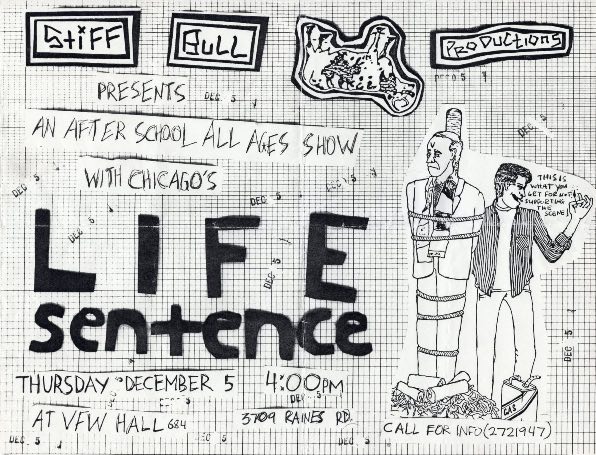 StiFF BULL PRODUCTIONS
PRESENTS
AN AFTER SCHOOL ALL AGES SHOW
WITH CHICAGO'S
LIFE
sentence
THURSDAY DECEMBER 5 4:00PM
AT VFW HALL 684 3709 RAINES RD.
THIS IS
WHAT YOU
GET FOR NOT
SUPPORTING
THE
SCENE!
GAS
CALL FOR INFO (2721947)
DEC 5
DEC 5
DEC 5
DEC 5
DEC 5
DEC 5
DEC 5
DEC 5
DEC 5
DEC 5
DEC 5
DEC 5